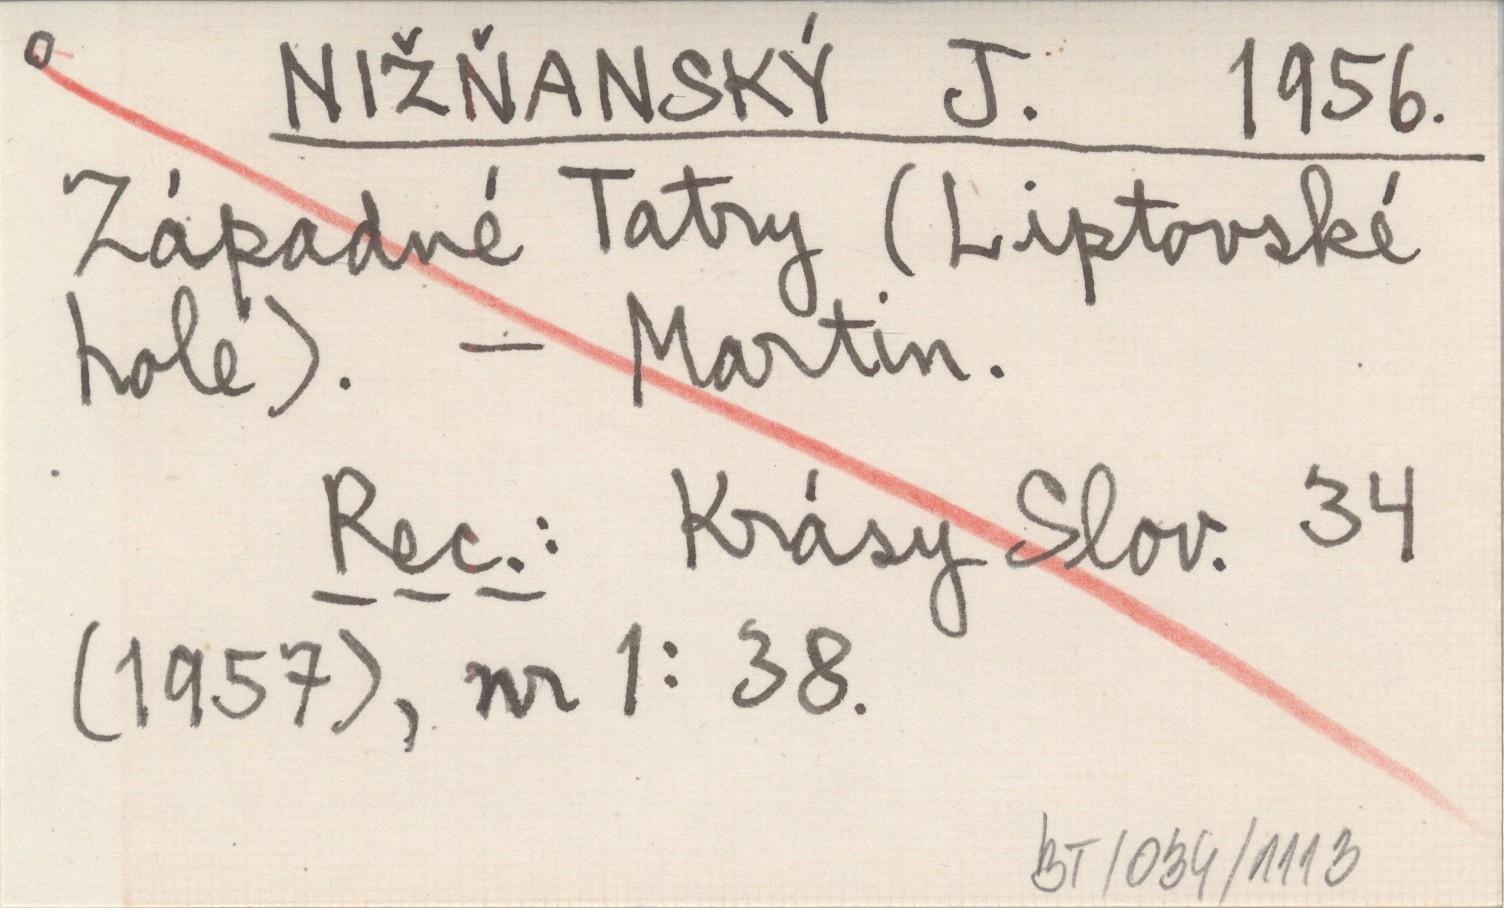 NIŽŇANSKÝ J. 1956.
Západné Tatry (Liptovské
hole). — Martin.
Rec.: Krásy Slov. 34
(1957), nr 1: 38.
BT/034/1113